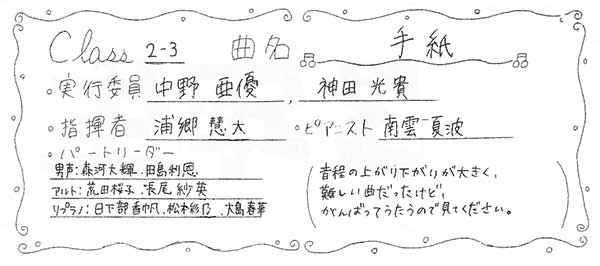 Class 2-3 曲名 手紙
。実行委員 中野 亜優 , 神田 光貴
。指揮者 浦郷 慧大 。ピアニスト 南雲 夏波
。パートリーダー
男声: 森河大輝. 田島利恩
アルト: 荒田桜子. 長尾紗英
ソプラノ: 日下部香帆. 松本彩乃. 大島春華
音程の上がり下がりが大きく、
難しい曲だったけど、
がんばってうたうので見てください。